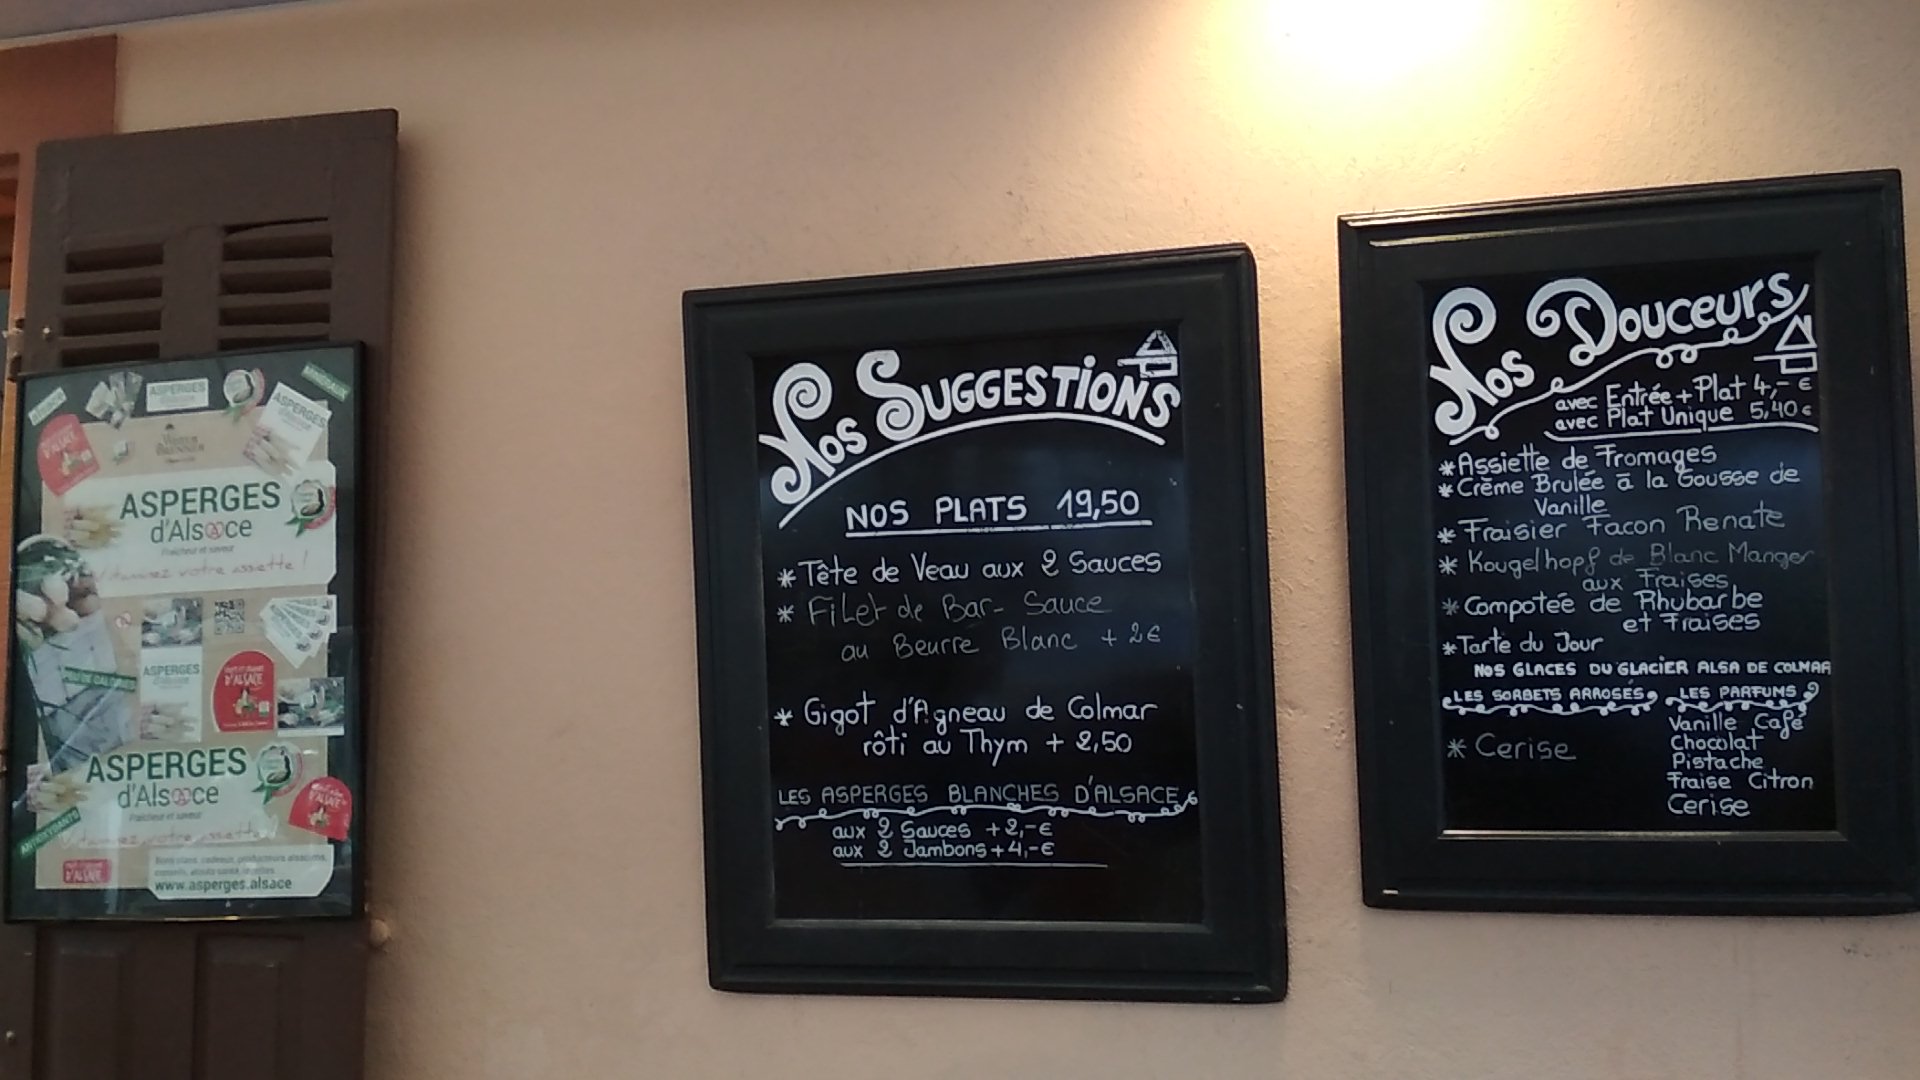 ASPERGES
MINÉRAUX
ASPERGES
ASPERGES
d'Alsace
Fraîcheur et saveur
Vitaminez votre assiette !
ASPERGES
PEU DE CALORIES
D'ALSACE
ASPERGES
d'Alsace
Fraîcheur et saveur
Vitaminez votre assiette
ANTIOXYDANTS
D'ALSACE
Bons plans, cadeaux, producteurs alsaciens,
conseils, atouts santé, recettes
www.asperges.alsace
Nos Suggestions
NOS PLATS 19,50
* Tête de Veau aux 2 Sauces
* Filet de Bar- Sauce
au Beurre Blanc + 2€
* Gigot d'Agneau de Colmar
rôti au Thym + 2,50
LES ASPERGES BLANCHES D'ALSACE
aux 2 Sauces +2,-€
aux 2 Jambons+4,-€
Nos Douceurs
avec Entrée+Plat 4,-€
avec Plat Unique 5,40€
* Assiette de Fromages
* Crème Brulée à la Gousse de
Vanille
* Fraisier Facon Renate
* Kougelhopf de Blanc Manger
aux Fraises
* Compotée de Rhubarbe
et Fraises
* Tarte du Jour
NOS GLACES DU GLACIER ALSA DE COLMAR
LES SORBETS ARROSÉS
* Cerise
LES PARFUMS
Vanille Café
Chocolat
Pistache
Fraise Citron
Cerise